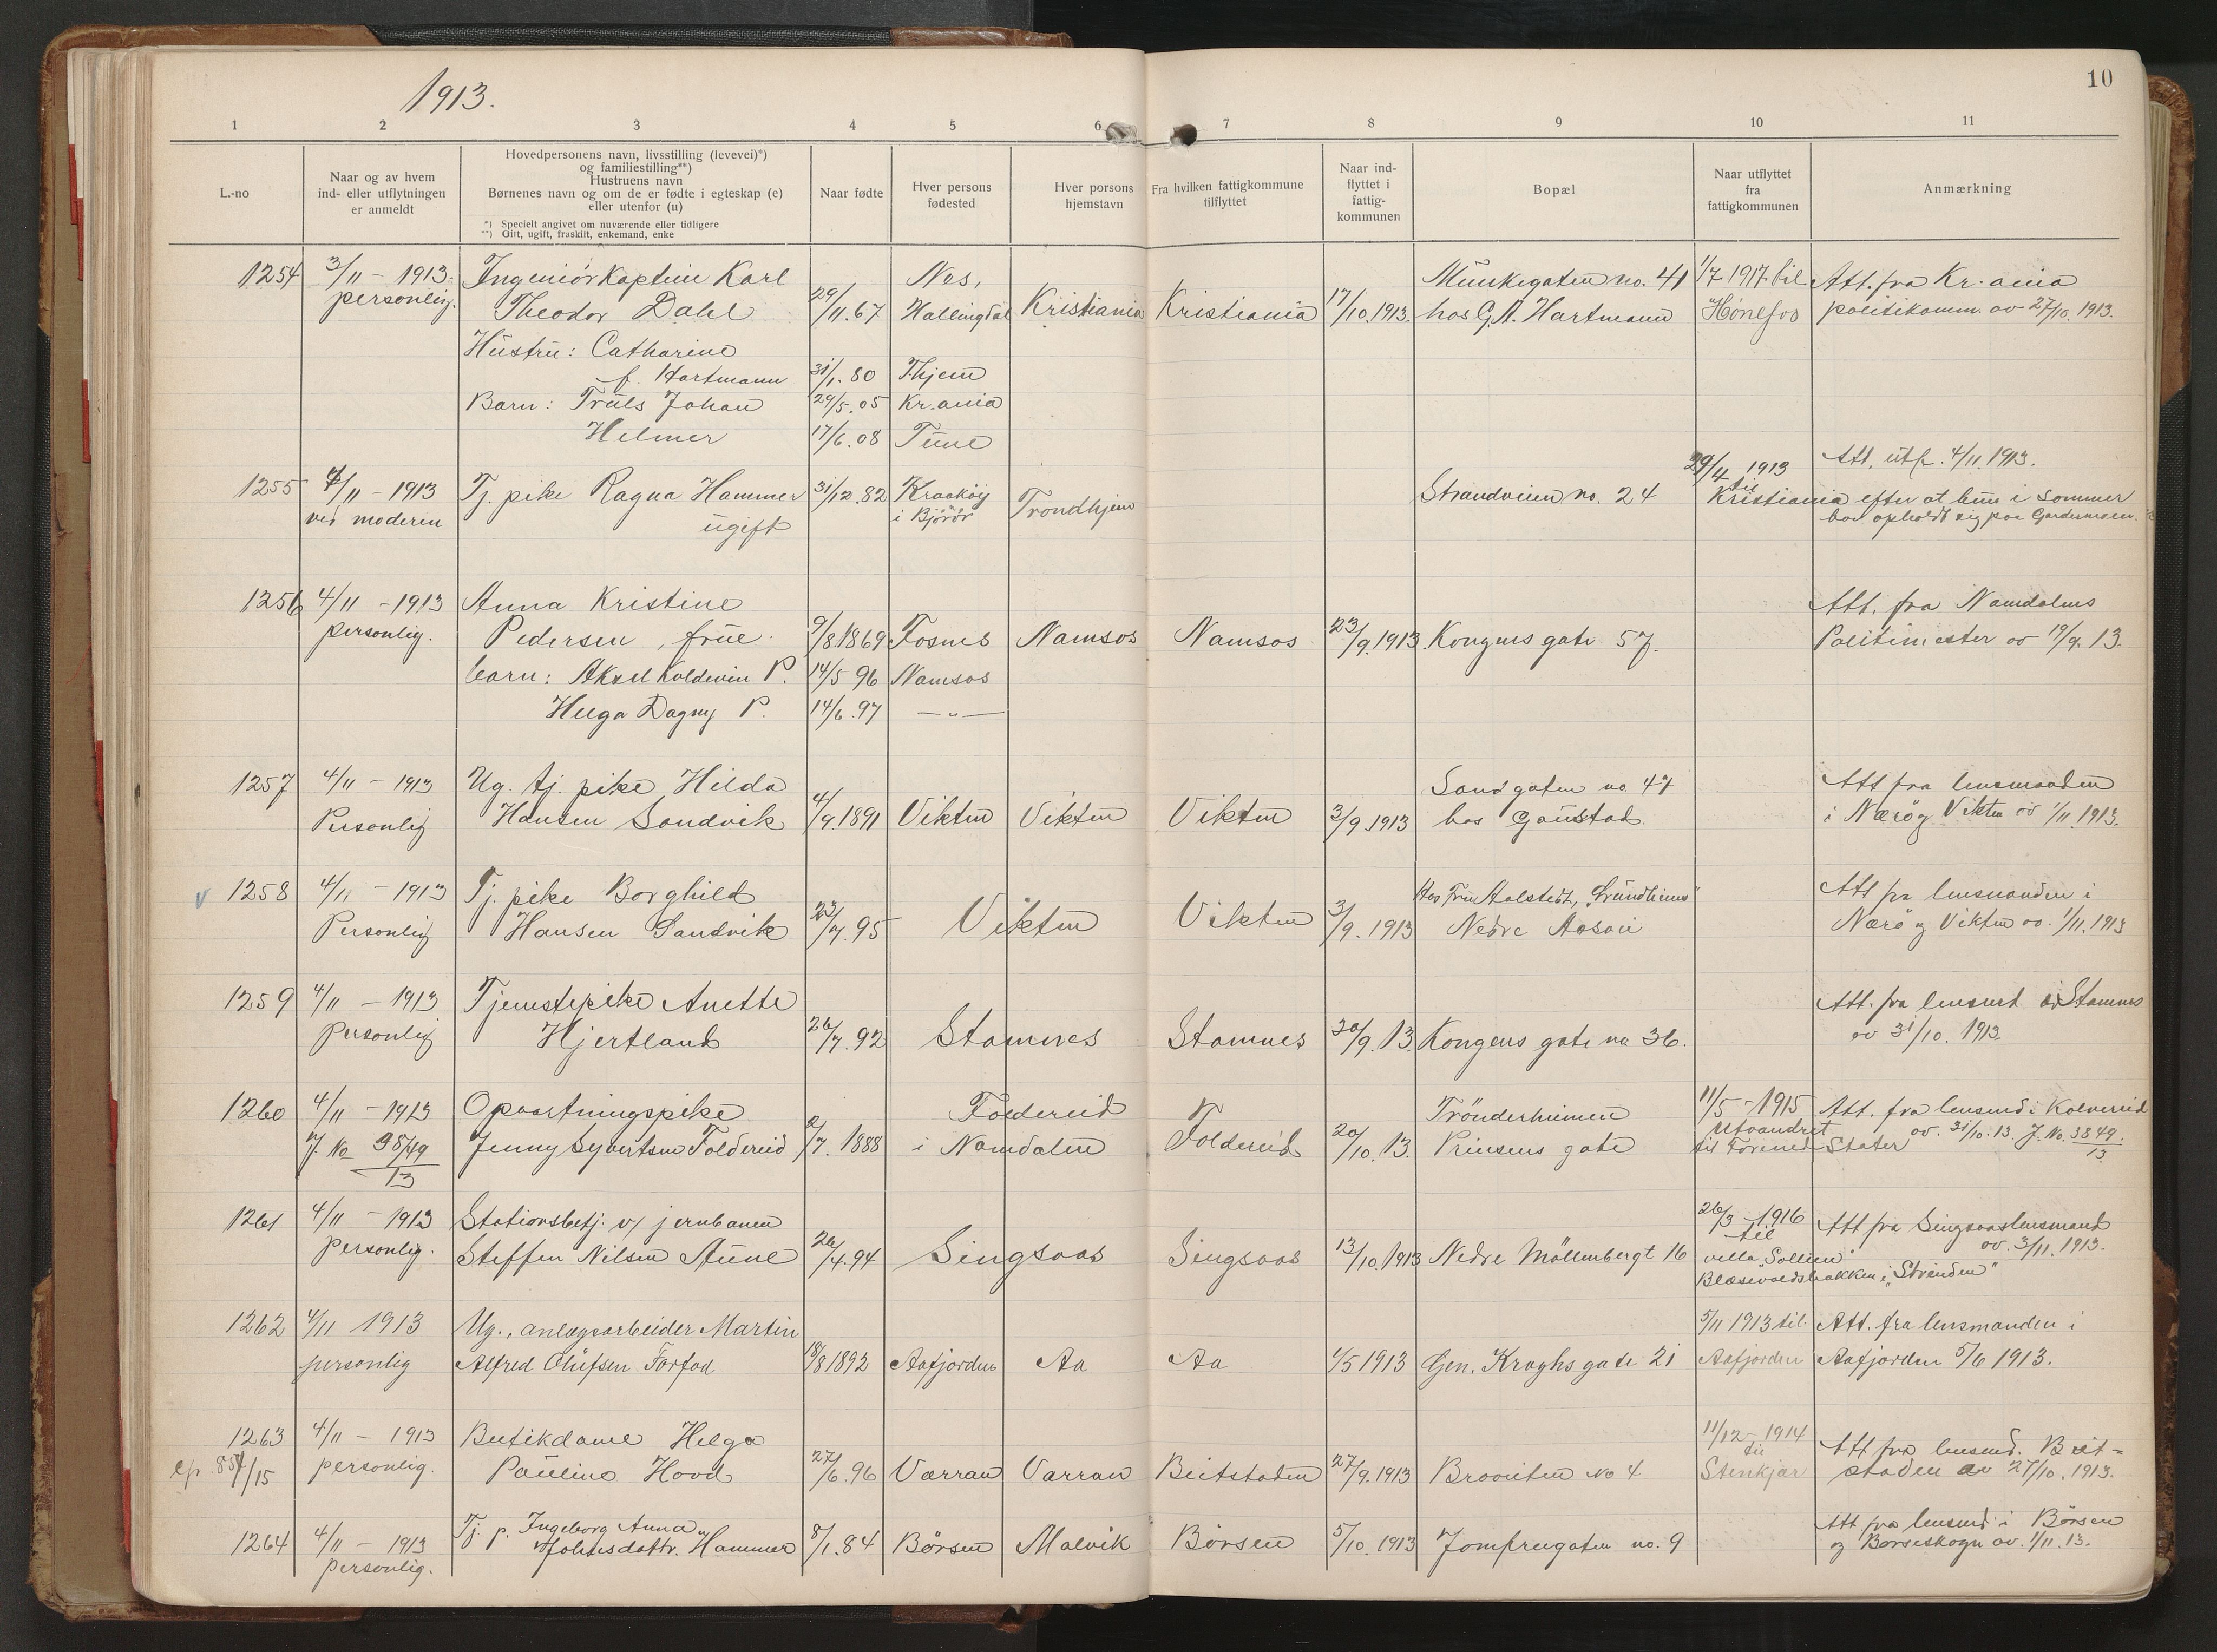 1913.
10
1 2 3 4 5 6 7 8 9 10 11
L.-no
Naar og av hvem
ind- eller utflytningen
er anmeldt
Hovedpersonens navn, livsstilling (levevei)*)
og familiestilling**)
Hustruens navn
Børnenes navn og om de er fødte i egteskap (e)
eller utenfor (u)
*) Specielt angivet om nuværende eller tidligere
**) Gift, ugift, fraskilt, enkemand, enke
Naar fødte
Hver persons
fødested
Hver persons
hjemstavn
Fra hvilken fattigkommune
tilflyttet
Naar ind-
flyttet i
fattig-
kommunen
Bopæl
Naar utflyttet
fra
fattigkommunen
Anmærkning
1254 3/11 - 1913. Ingeniörkaptein Karl Nes, Munkegaten no. 41 1/7 1917 til Att. fra Kr.ania
personlig. Theodor Dahl 29/11.67 Hallingdal Kristiania Kristiania 17/10.1913. hos G.A. Hartmann Hönefos politikamm. av 27/10.1913.
Hustru: Catharine
f. Hartmann 31/1.80 Thjem
Barn: Truls Johan 29/5.05 Kr.ania
Helmer 17/6.08 Tune
29/4 1913 Att. utf. 4/11.1913.
1255 4/11 - 1913 Tj. pike Ragna Hammer 31/12.82 Kraaköy Trondhjem Strandveien no. 24 til Kristiania efter at hun i sommer
ved moderen ugift i Björör har opholdt sig paa Gardermoen.
1256 4/11 - 1913 Anna Kristine Att. fra Namdalens
personlig. Pedersen, frue. 9/8.1869 Fosnes Namsos Namsos 23/9.1913 Kongens gate 57. Politimester av 19/9.13.
barn: Aksel Koldevin P. 14/5 96 Namsos
Helga Dagny P. 14/6.97 — " —
1257 4/11 - 1913 Ug. tj. pike Hilda Sandgaten no. 47 Att fra lensmanden
Personlig Hansen Sandvik 4/9.1891 Vikten Vikten Vikten 3/9 1913 hos Gaustad i Nærö og Vikten av 1/11.1913.
v 1258 4/11 - 1913 Tj. pike Borghild Hos Fru Aalstedt, "Grundheim" Att fra lensmanden i
Personlig Hansen Sandvik 23/7.95 Vikten Vikten 3/9.1913 Nedre Aasvei Nærö og Vikten av 1/11.1913
1259 4/11 - 1913 Tjenestepike Anette Att. fra lensmd i Stamnes
Personlig Hjertland 26/7.92 Stamnes Stamnes 30/9.13. Kongens gate no 36. av 31/10.1913.
1260 4/11 - 1913 Opvartningspike Foldereid Trönderheimen 11/5 - 1915 Att. fra lensmd i Kolvereid
J. No 3849/13 Jenny Syvertsen Foldereid 2/7. 1888 i Namdalen Foldereid 20/10.13. Prinsens gate Utvandret til Forenede Stater av. 31/10.13. J. No. 3849/13
1261 4/11 - 1913 Stationsbetj. v/ jernbanen 26/3 - 1916 Att fra Singsaas lensmand
Personlig. Steffen Nilsen Aune 26/4.94 Singsaas Singsaas 13/10.1913 Nedre Möllenbergt 16 til villa "Sollien" av. 3/11.1913.
Blæsevoldsbakken i "Strinden"
1262 4/11 1913 Ug., anlægsarbeider Martin 5/11 1913 til Att. fra lensmanden i
personlig Alfred Olufsen Forfod 18/8 1892 Aafjorden Aa Aa 1/5 1913 Gen. Kraghs gate 21 Aafjorden Aafjorden 5/6 1913.
1263 4/11 - 1913 Butikdame Helga 11/12 - 1914 Att fra lensmd. Beit-
cfr 854/15 personlig. Pauline Hovd 27/6.96 Varran Varran Beitstaden 27/9.1913 Bravoiten No 4 til Stenkjær staden av 27/10.1913.
1264 4/11 - 1913 Tj. p. Ingeborg Anna Att fra lensmd i Börsen
personlig. Johnsdattr. Hammer 8/1.84 Börsen Malvik Börsen 5/10.1913 Jomfrugaten no. 9 og Børseskogn av. 1/11.13.